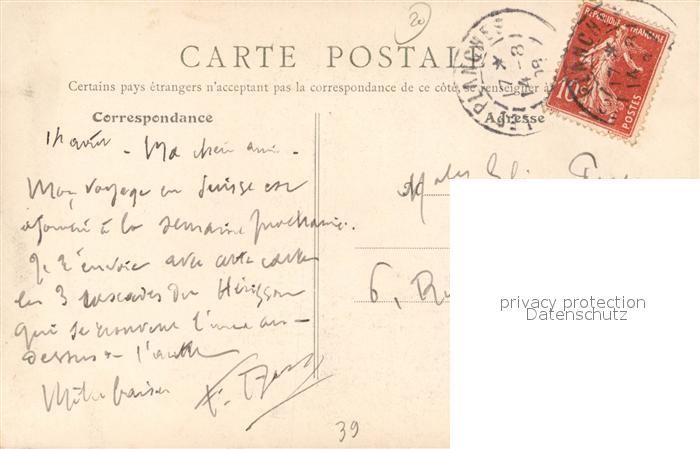 20
CARTE POSTALE
Certains pays étrangers n'acceptant pas la correspondance de ce côté, se renseigner à
Correspondance
Adresse
REPUBLIQUE FRANÇAISE
10
POSTES
LES PLANCHES
17 * 14 -8
Ma chère amie.
Mon voyage en Suisse est
ajourné à la semaine prochaine.
Je t'envoie avec cette carte
les 3 cascades du Hérisson
qui se trouvent l'une au-
dessus de l'autre
Mille baisers
6, Ru
39
privacy protection
Datenschutz